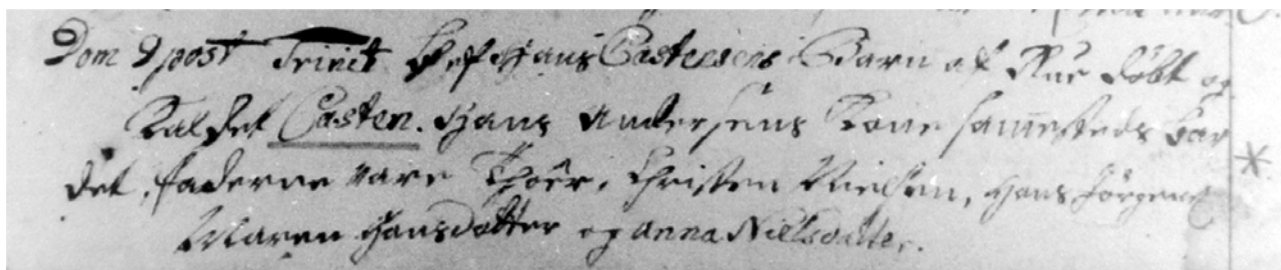 Dom 9 post Trinit blef Hans Castensens Barn af Rue döbt og
Kaldet Casten. Hans Andersens Kone sammesteds bar
det, faderne vare Christen Nielsen, Hans Jörgens
Maren Hansdatter og Anna Nielsdatter.